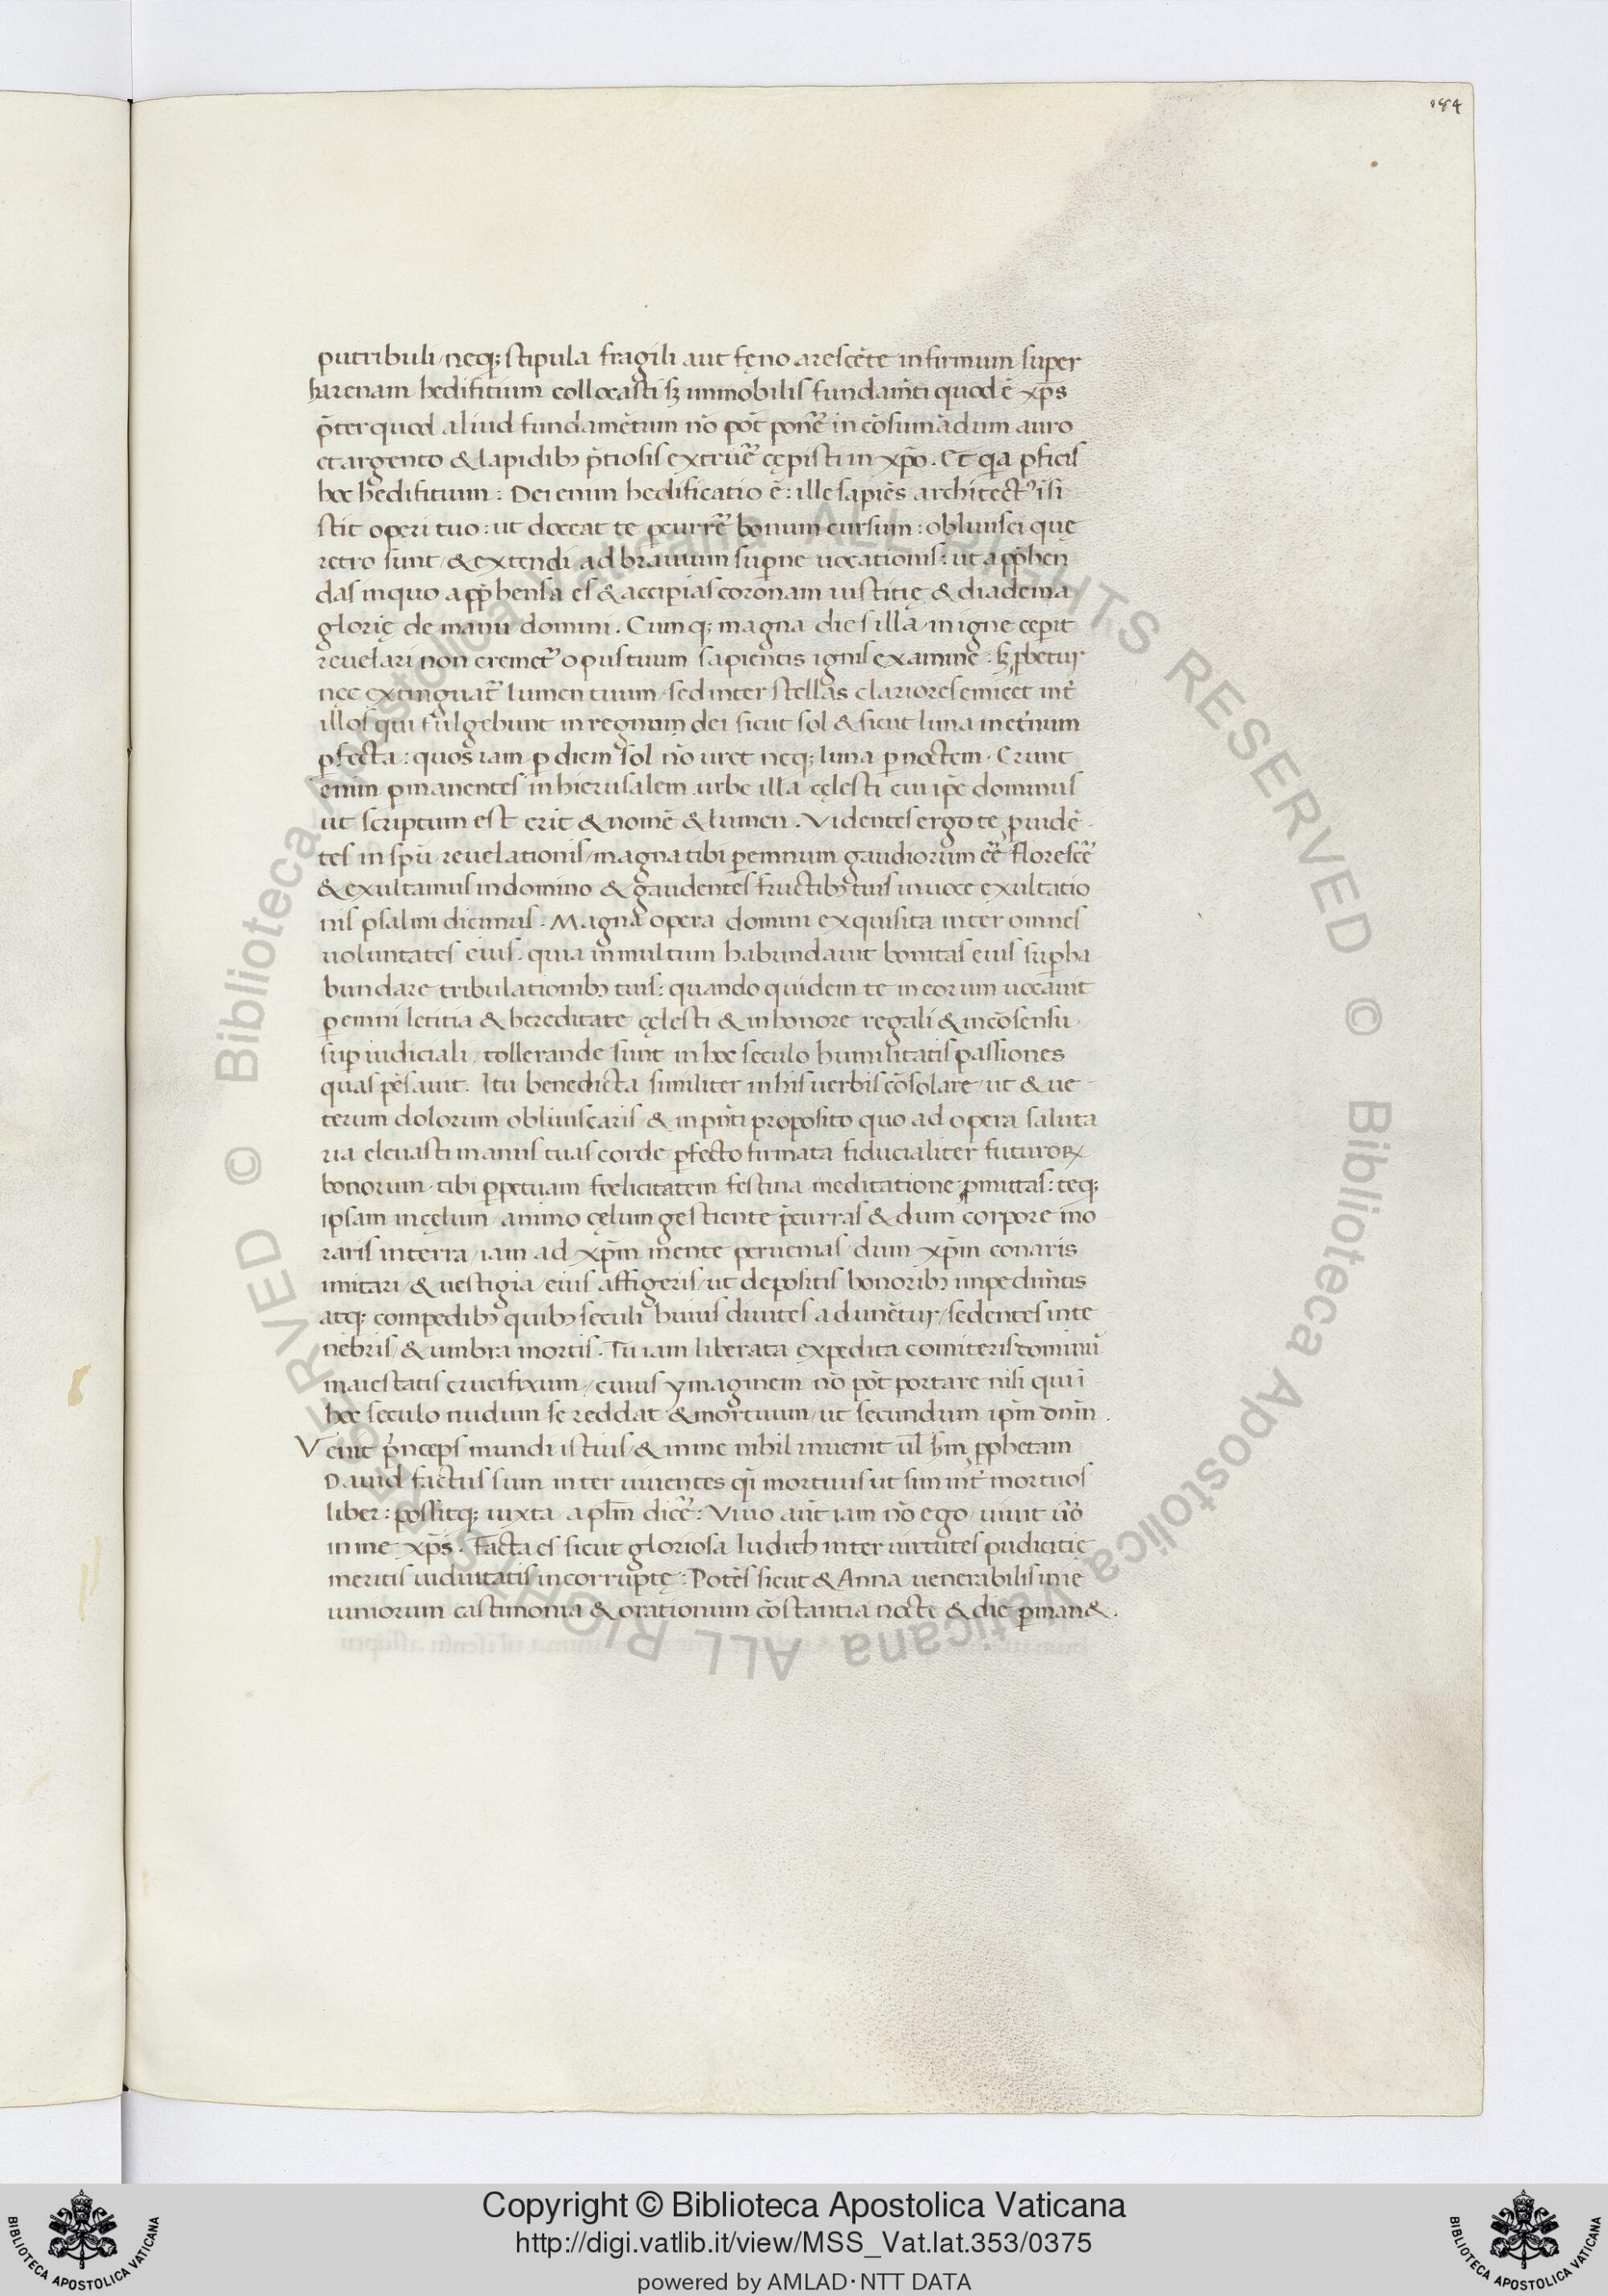 184
putribuli / neq; stipula fragili aut fęno arescēte infirmum super
harenam hedifitium collocasti sꝫ immobilis fundam̄ti quod ē xp̄s
p̄ter quod aliud fundamētum nō pōt ponēr in cōsumādum auro
et argento & lapidibꝫ p̄tiosis extruēr cępisti in xp̄o. Et qa pficis
hoc hedifitium: Dei enim hedificatio ē: ille sapiēs architectꝰ isi
stit operi tuo: ut doceat te pcurrēr bonum cursum: obliuisci quę
retro sunt / & extendi ad brauium sup̄ne uocationis: ut app̄hen
das in quo app̄hensa es & accipias coronam iustitię & diadema
glorię de manu domini. Cumq; magna dies illa / in igne cep̄it
reuelari non cremet᷑ opus tuum sapientis ignis examine: sꝫ ꝓbetur
nec extinguat᷑ lumen tuum / sed inter stellas clariores emicet int᷑
illos qui fulgebunt in regnum dei sicut sol & sicut luna in et᷑num
ꝑfecta: quos iam ꝑ diem sol nō uret neq; luna ꝑ noctem. Erunt
enim ꝑmanentes in hierusalem urbe illa cęlesti cui ip̄e dominus
ut scriptum est erit & nomē & lumen. Videntes ergo te ꝓuidē
tes in sp̄u reuelationis / magna tibi ꝑemnum gaudiorum eē florescēr
& exultamus in domino & gaudentes fructibꝫ tuis in uoce exultatio
nis psalmi dicimus. Magna opera domini exquisita inter omnes
uoluntates eius. quia in multum habundauit bonitas eius supha
bundare tribulationibꝫ tuis: quando quidem te in eorum uocauit
ꝑemni letitia & hereditate cęlesti & in honore regali & in cōsensu
suꝑ iudiciali / tollerande sunt in hoc seculo humilitatis passiones
quas pēsauit. Itu benedicta similiter in his uerbis cōsolare / ut & ue
terum dolorum obliuiscaris / & in pn̄ti proposito quo ad opera saluta
ria eleuasti manus tuas corde ꝑfecto firmata fiducialiter futuroꝝ
bonorum tibi ꝑpetuam foelicitatem festina meditatione ꝓmittas: teq;
ipsam in cęlum / animo cęlum gestiente p̄curras & dum corpore mo
raris in terra / iam ad xp̄m mente peruenias dum xp̄m conaris
imitari / & uestigia / eius affigeris / ut depositis honoribꝫ impedim̄tis
atq; compedibꝫ quibꝫ seculi huius diuites adunētur / sedentes in te
nebris / & umbra mortis. Tu iam liberata expedita comiteris dominū
maiestatis crucifixum / cuius ymaginem nō pōt portare nisi qui ī
hoc seculo nudum se reddat & mortuum / ut secundum ip̄m dn̄m.
Venit p̄nceps mundi istius / & in me nihil inuenit ul̄ s̄m ꝓphetam
Dauid factus sum inter uiuentes qi mortuus ut sim int᷑ mortuos
liber: possitq; iuxta apl̄m dicēr: Viuo aūt iam nō ego / uiuit ūo
in me xp̄s. Facta es sicut gloriosa Iudith inter uirtutes pudicitię
meritis uiduitatis incorruptę: Potēs sicut & Anna uenerabilis in ie
iuniorum castimonia & orationum cōstantia nocte & die ꝑman&.
Copyright © Biblioteca Apostolica Vaticana
http://digi.vatlib.it/view/MSS_Vat.lat.353/0375
powered by AMLAD·NTT DATA
BIBLIOTECA APOSTOLICA VATICANA
BIBLIOTECA APOSTOLICA VATICANA
© Biblioteca Apostolica Vaticana ALL RIGHTS RESERVED © Biblioteca Apostolica Vaticana ALL RIGHTS RESERVED